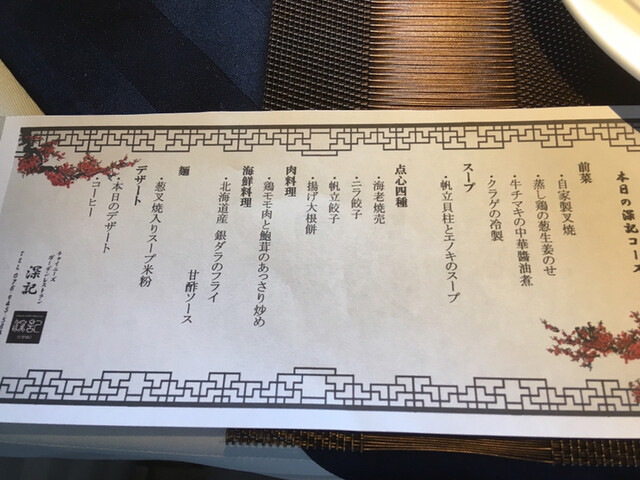 本日の深記コース
前菜
・自家製叉焼
・蒸し鶏の葱生姜のせ
・牛チマキの中華醬油煮
・クラゲの冷製
スープ
・帆立貝柱とエノキのスープ
点心四種
・海老焼売
・ニラ餃子
・帆立餃子
・揚げ大根餅
肉料理
・鶏モモ肉と鮑茸のあっさり炒め
海鮮料理
・北海道産 銀ダラのフライ
甘酢ソース
麺
・葱叉焼入りスープ米粉
デザート
・本日のデザート
コーヒー
チャイニーズ
ガーデンレストラン
深記